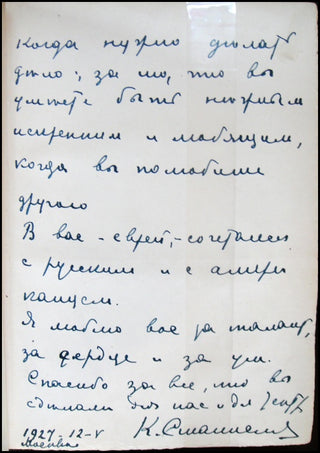 когда нужно делать
дело; за то, что вы
умеете быть нежным
искренним и любящим,
когда вы полюбили
другого
В вас - еврей, - сочетался
с русским и с амери
канцем.
Я люблю вас за талант,
за сердце и за ум.
Спасибо за все, что вы
сделали для нас и для
1927-12-V К. Станислав
Москва